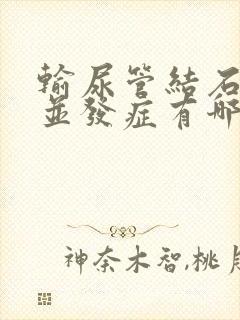 輸尿管結石
並發症有哪
神奈木智,桃月